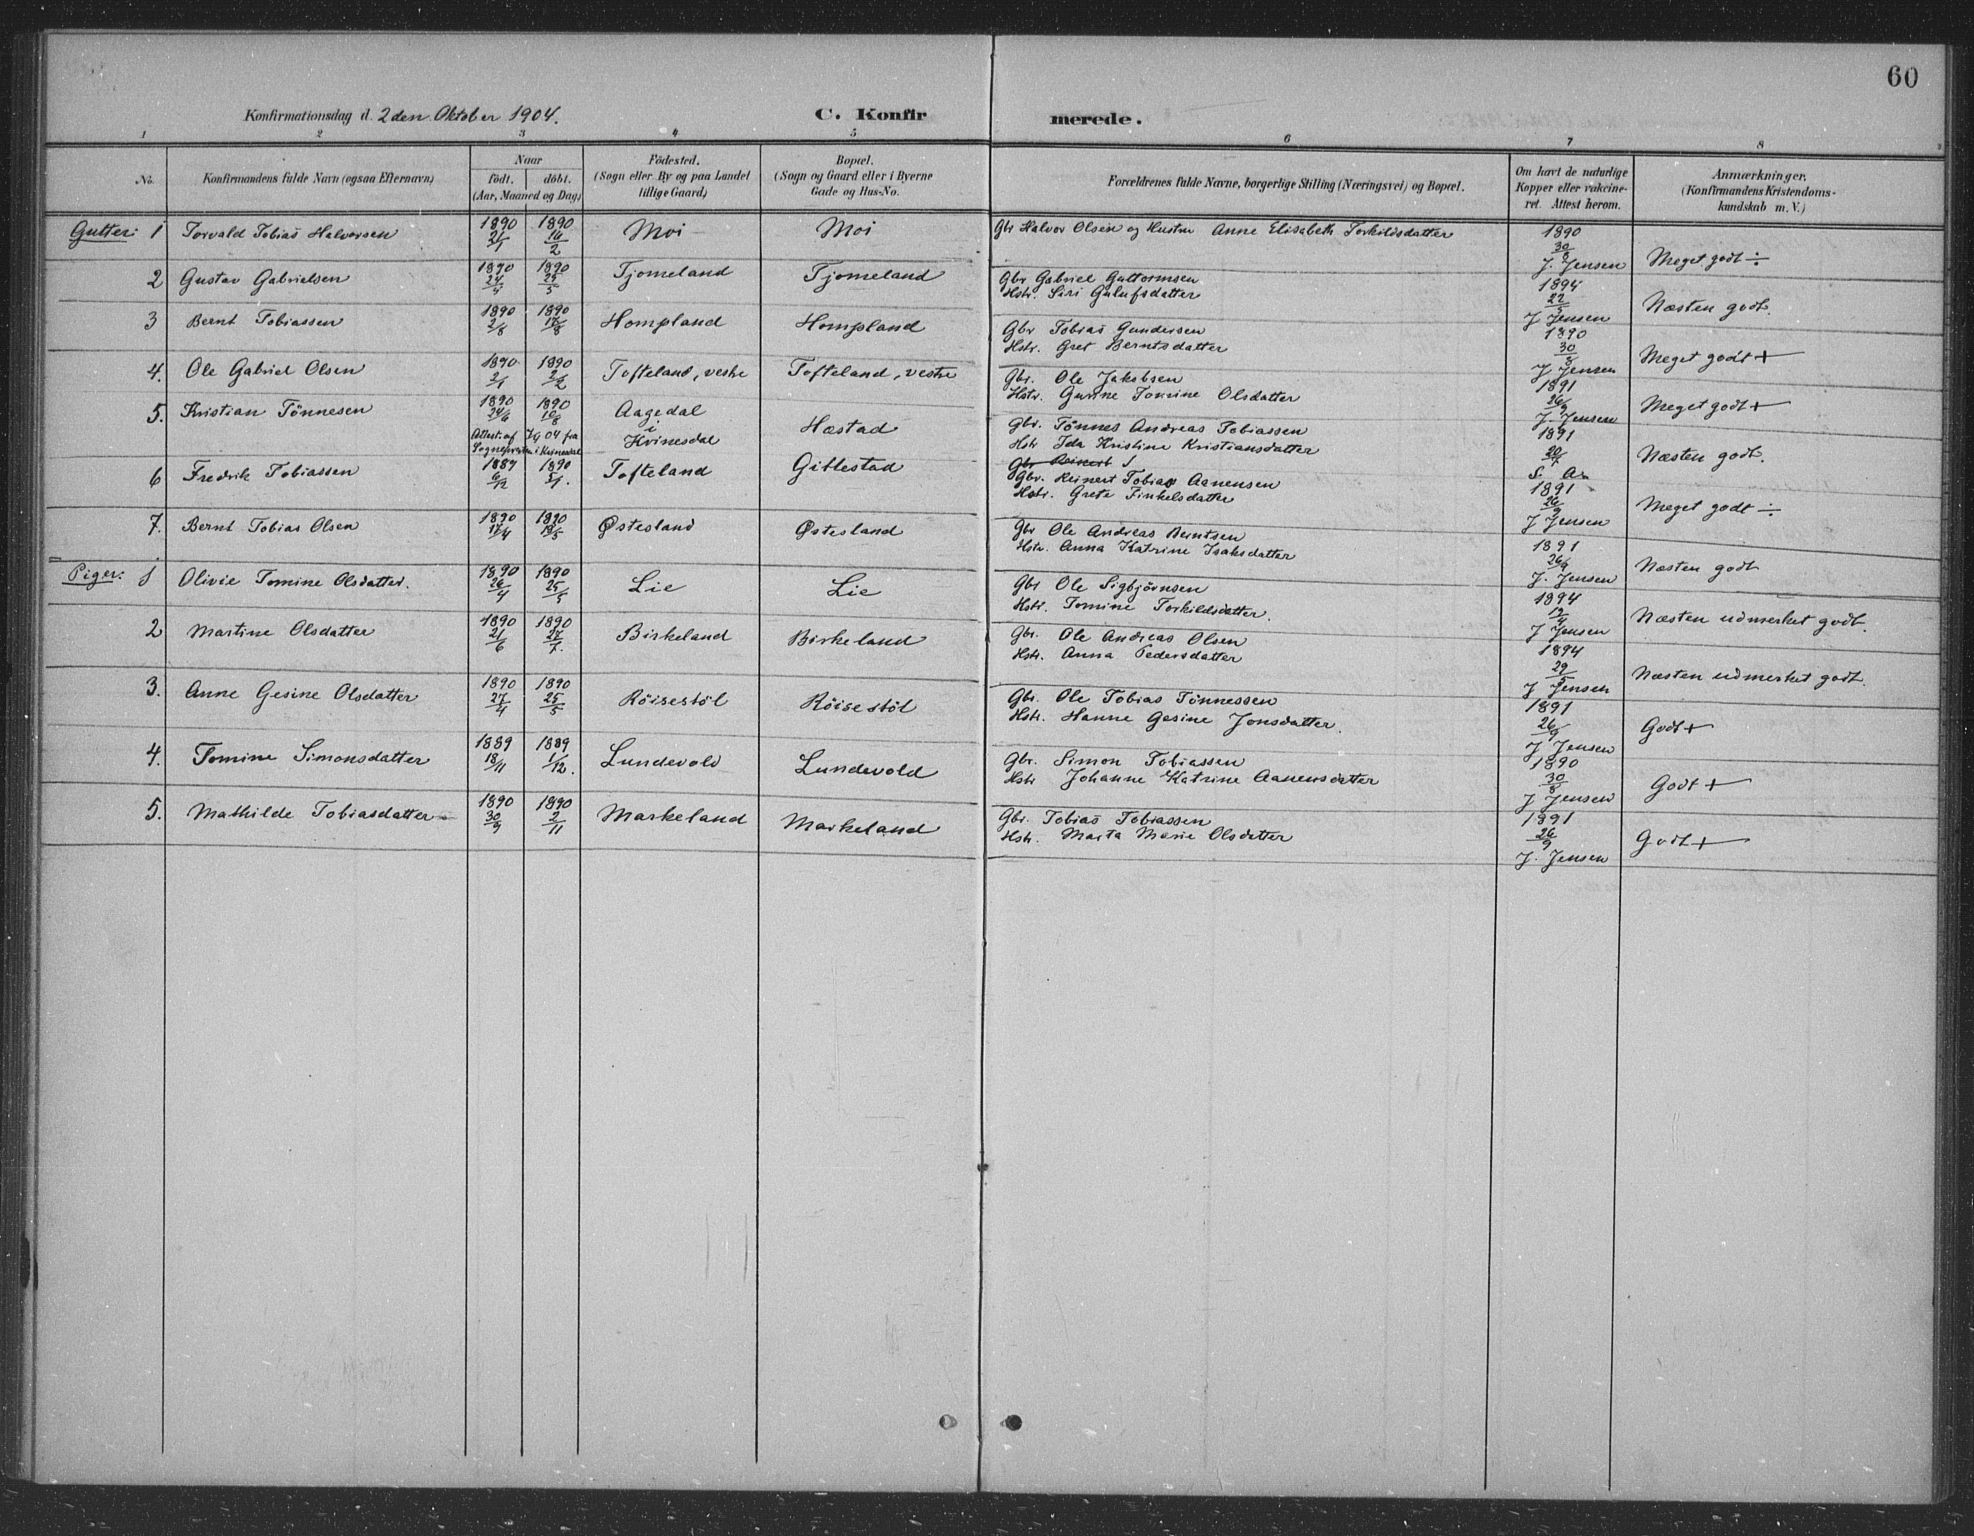 60
Konfirmationsdag d. 2den Oktober 1904.
C. Konfirmerede.
1 2 3 4 5 6 7 8
No.
Konfirmandens fulde Navn (ogsaa Efternavn)
Naar
födt. döbt.
(Aar, Maaned og Dag)
Födested.
(Sogn eller By og paa Landet
tillige Gaard)
Bopæl.
(Sogn og Gaard eller i Byerne
Gade og Hus-No.
Forældrenes fulde Navne, borgerlige Stilling (Næringsvei) og Bopæl.
Om havt de naturlige
Kopper eller vakcine-
ret. Attest herom.
Anmærkninger.
(Konfirmandens Kristendoms-
kundskab m. V.)
Gutter: 1 Torvald Tobias Halvorsen 1890 21/1 1890 16/2 Moi Moi Gbr Halvor Olsen og Hustru Anne Elisabeth Torkildsdatter 1890 30/8 J. Jensen Meget godt ÷
2 Gustav Gabrielsen 1890 24/4 1890 25/5 Tjomeland Tjomeland Gbr Gabriel Guttormsen
Hstr. Siri Gulufsdatter 1894 J Jensen Næsten godt.
3 Bernt Tobiassen 1890 2/8 1890 17/8 Hompland Hompland Gbr Tobias Gundersen
Hstr. Gret Berntsdatter 1890 30/8 J. Jensen Meget godt +
4. Ole Gabriel Olsen 1890 2/1 1890 2/2 Tofteland, vestre Tofteland, vestre Gbr. Ole Jakobsen
Hstr. Gurine Tomine Olsdatter 1891 26/9 J. Jensen Meget godt +
5. Kristian Tönnesen 1890 24/6 1890 10/8 Aagedal
i
Kvinesdal Hæstad Gbr. Tönnes Andreas Tobiassen
Hstr Ida Kristine Kristiansdatter 1891 Næsten godt.
Attest af 04 fra
Sognepresten i Kvinesdal
6 Fredrik Tobiassen 1889 6/12 1890 5/1. Tofteland Gitlestad Gbr Reinert
Gbr. Reinert Tobias Aanensen
Hstr. Grete Finkelsdatter 1891 26/9 J Jensen Meget godt ÷
7. Bernt Tobias Olsen 1890 17/4 1890 18/5 Østesland Østesland Gbr Ole Andreas Berntsen
Hstr. Anna Katrine Isaksdatter 1891 26/9 J. Jensen Næsten godt
Piger: 1 Olivie Tomine Olsdatter. 1890 26/4 1890 25/5 Lie Lie Gbr Ole Sigbjörnsen
Hstr. Tomine Torkildsdatter. 1894 12/4 J Jensen Næsten udmerket godt.
2 Martine Olsdatter 1890 21/6 1890 27/7. Birkeland Birkeland Gbr. Ole Andreas Olsen
Hstr. Anna Pedersdatter 1894 J Jensen Næsten udmerket godt.
3. Anne Gesine Olsdatter 1890 27/4 1890 25/5 Röisestöl Röisestöl Gbr. Ole Tobias Tönnessen
Hstr. Hanne Gesine Jonsdatter. 1891 26/9 J Jensen Godt +
4. Tomine Simonsdatter 1889 18/11 1889 1/12. Lundevold Lundevold Gbr. Simon Tobiassen
Hstr Johanne Katrine Aanensdatter 1890 30/8 J Jensen Godt +
5. Mathilde Tobiasdatter 1890 30/9 1890 2/11 Markeland Markeland Gbr. Tobias Tobiassen
Hstr. Marta Marie Olsdatter 1891 26/9 J. Jensen Godt +